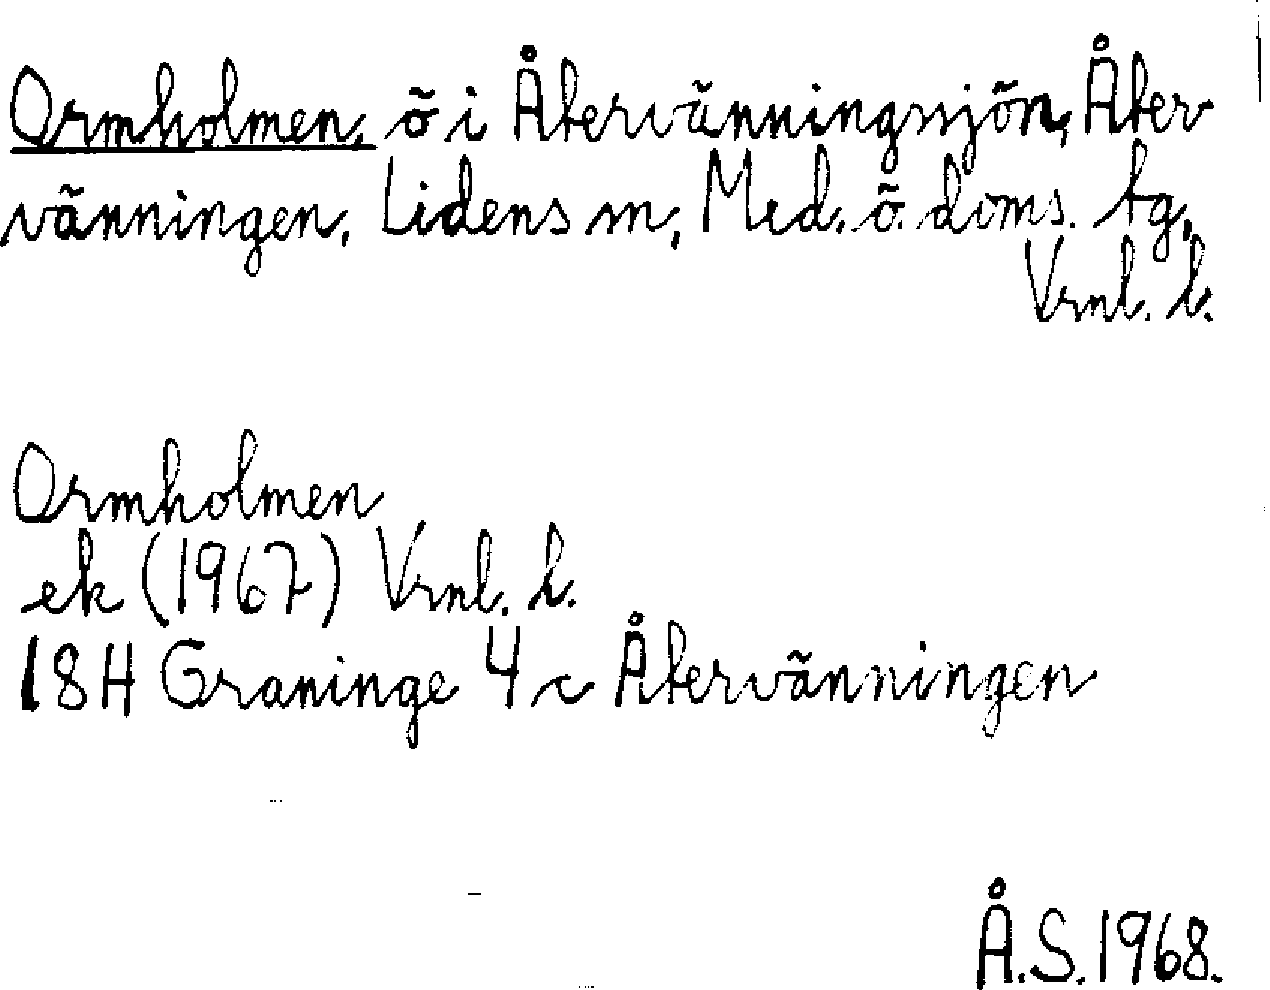 Ormholmen, ö i Återvänningssjön, Åter
vänningen, Lidens sn, Med. ö. doms. tg,
Vrnl. l.
Ormholmen
ek (1967) Vrnl. l.
18H Graninge 4 c Återvänningen
Å.S. 1968.